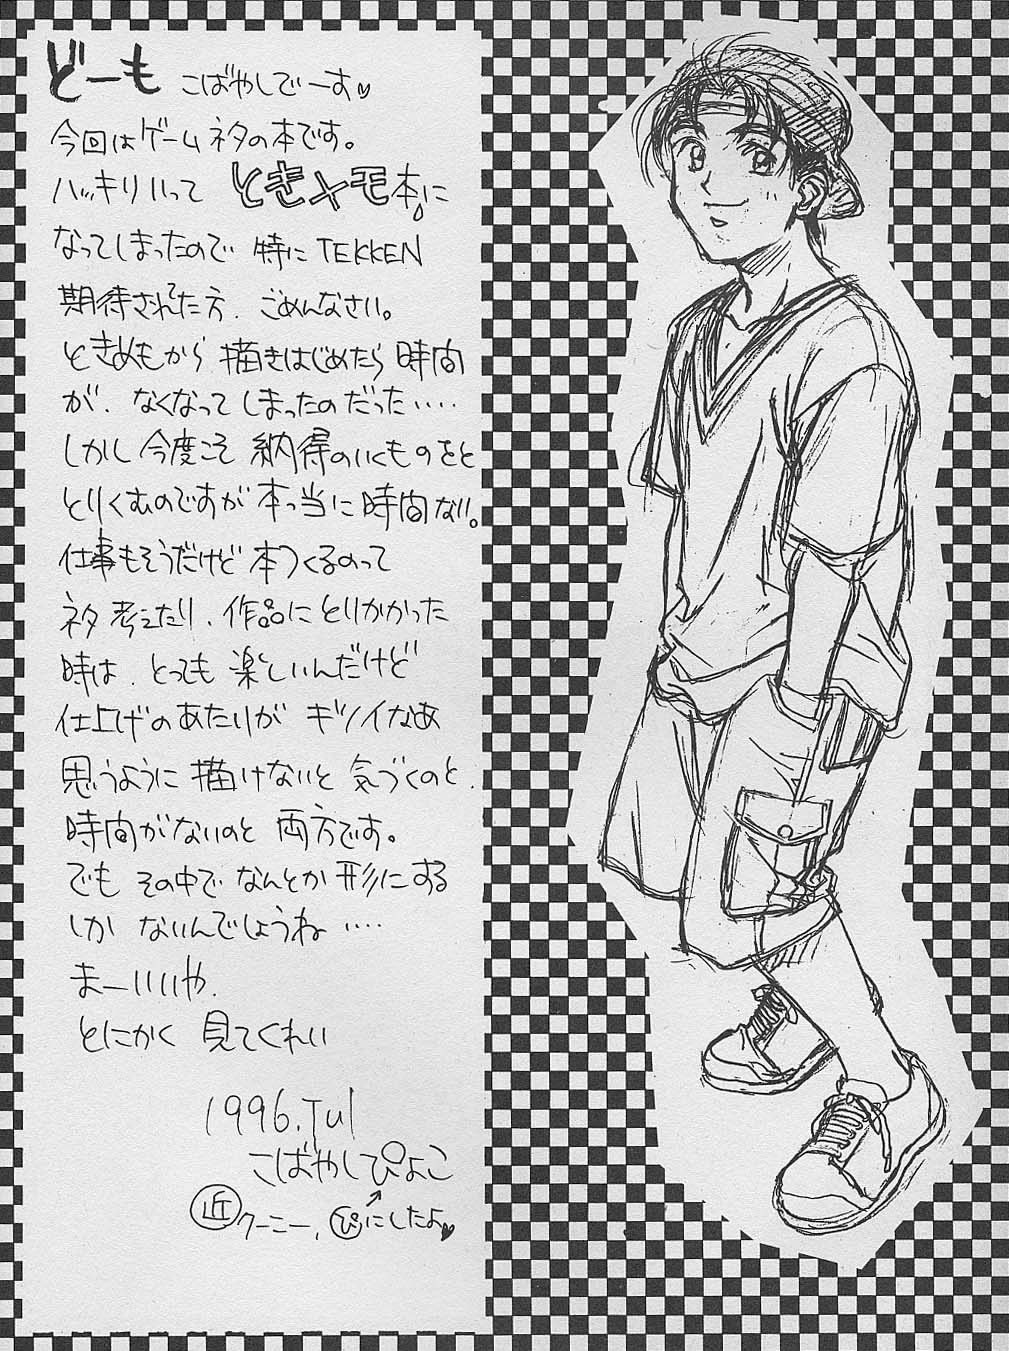 どーも こばやしでーす♥
今回はゲームネタの本です。
ハッキリいって ときメモ本に
なってしまったので 特に TEKKEN
期待されてた方、ごめんなさい。
ときめもから 描きはじめたら 時間
が、なくなって しまったのだった‥‥
しかし 今度こそ 納得のいくものをと
とりくむのですが 本っ当に 時間ない。
仕事もそうだけど 本つくるのって
ネタ 考えたり、作品に とりかかった
時は、とっても 楽しいんだけど
仕上げのあたりが キツイなあ
思うように 描けないと 気づくのと、
時間がないのと 両方です。
でも その中で なんとか 形にする
しか ないんでしょうね‥‥
まーいいや、
とにかく 見てくれい
1996.Jul
こばやしぴよこ
近 クーニー、ぴにしたよ♥